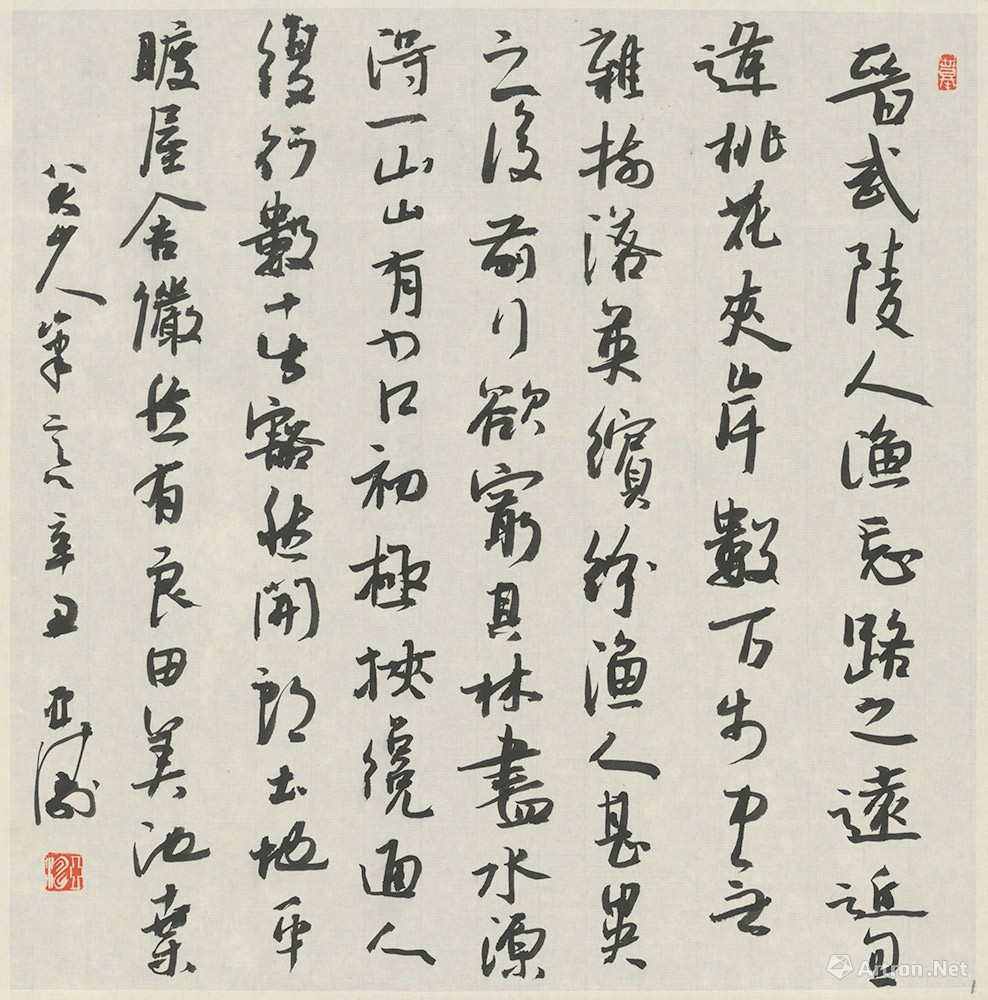 晉武陵人漁忘路之遠近曶
逢桃花夾岸數百步中無
雜樹落英繽紛漁人甚異
之後前行欲窮其林盡水源
得一山山有小口初極狹纔通人
復行數十步豁然開朗土地平
曠屋舍儼然有良田美池桑
八大山人筆意辛丑
Artron.Net